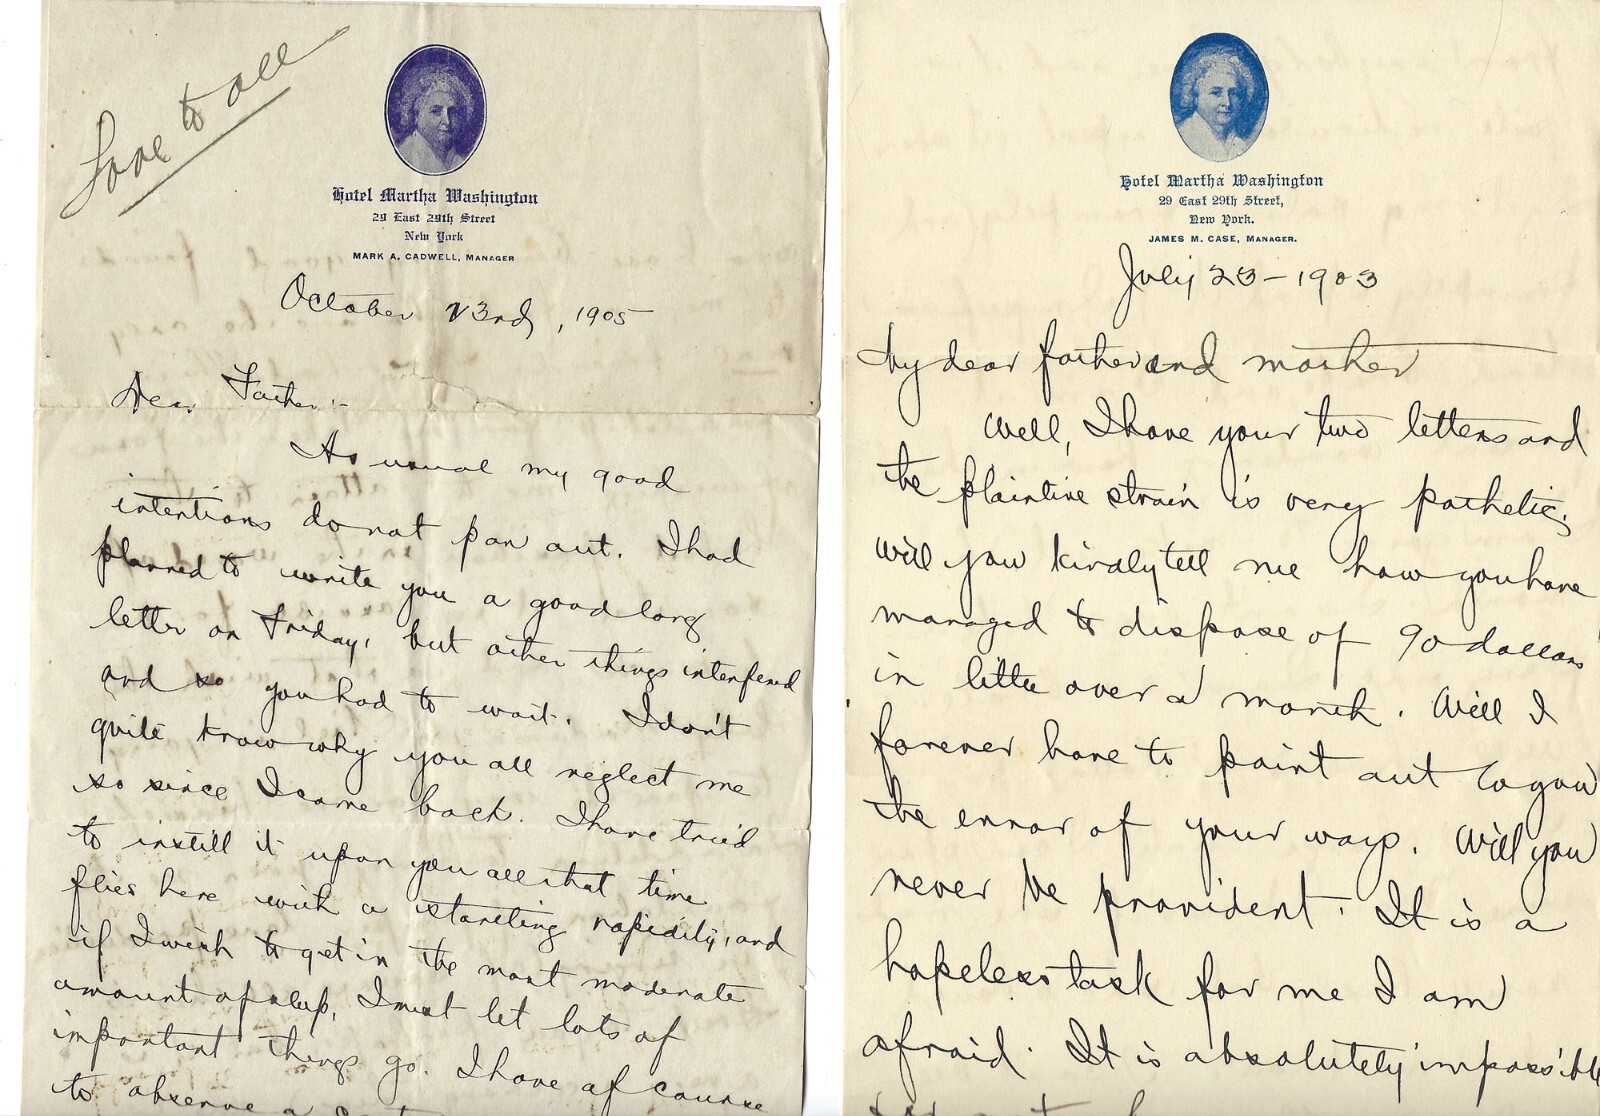 Love to all
Hotel Martha Washington
29 East 29th Street
New York
MARK A. CADWELL, MANAGER
October 23rd, 1905
Dear Father:-
As usual my good
intentions do not pan out. I had
planned to write you a good long
letter on Friday, but other things interfered
and so you had to wait. I don't
quite know why you all neglect me
so since I came back. I have tried
to instill it upon you all that time
flies here with a startling rapidity, and
if I wish to get in the most moderate
amount of sleep, I must let lots of
important things go. I have of course
to observe a
Hotel Martha Washington
29 East 29th Street,
New York.
JAMES M. CASE, MANAGER.
July 23-1903
My dear father and mother
Well, I have your two letters and
the plaintive strain is very pathetic.
Will you kindly tell me how you have
managed to dispose of 90 dollars
in little over a month. Will I
forever have to point out to you
the error of your ways. Will you
never be provident. It is a
hopeless task for me I am
afraid. It is absolutely impossible